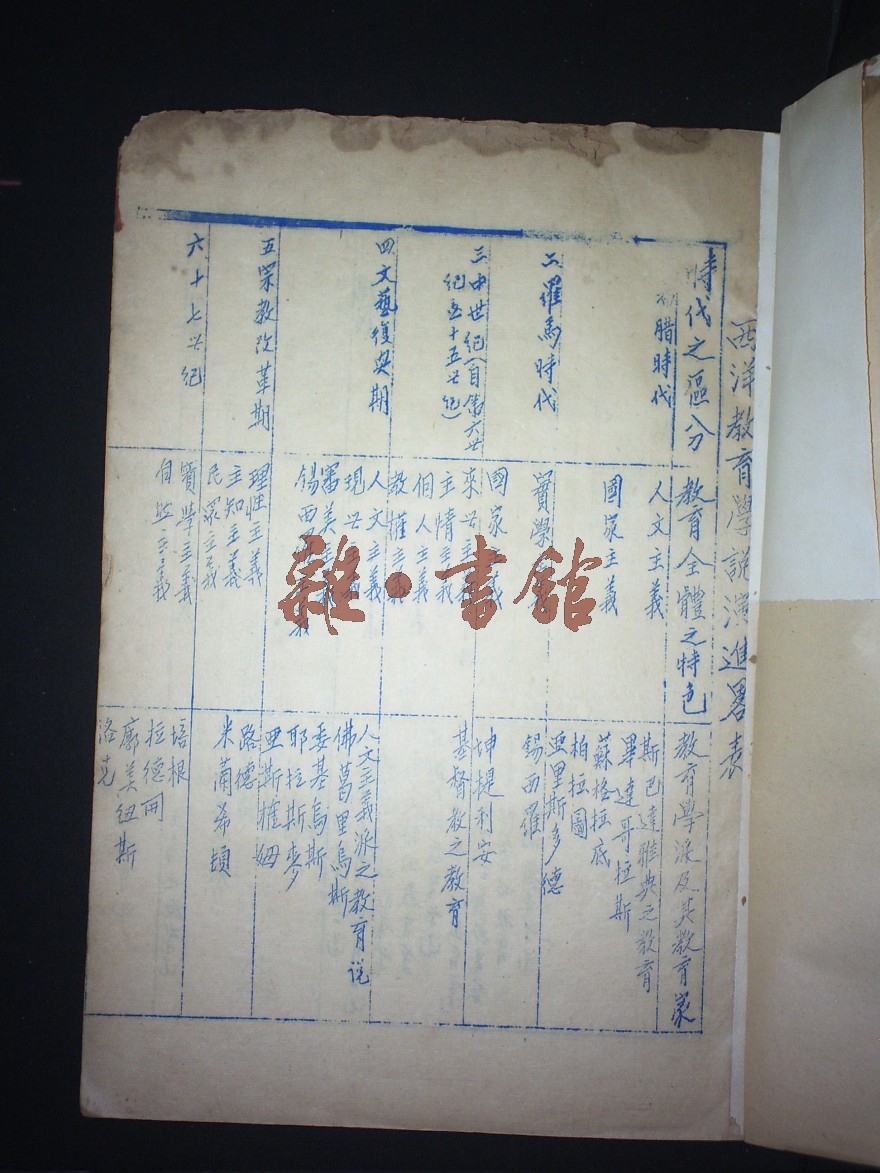 西洋教育學説演進畧表
時代之區分
教育全體之特色
教育學派及其教育家
腊時代
人文主義
國家主義
斯巴達雅典之教育
畢達哥拉斯
蘇格拉底
柏拉圖
亞里斯多德
二羅馬時代
實學
錫西羅
坤提利安
三中世紀(自第六世
紀至十五世紀)
國家主義
來世主義
主情主義
個人主義
教權主義
基督教之教育
四文藝復興期
人文主義
現世主義
審美主義
錫西
人文主義派之教育説
佛葛里烏斯
委基烏斯
耶拉斯麥
亜斯権姆
五宗教改革期
理性主義
主知主義
民衆主義
路德
米蘭希頓
六十七世紀
實學主義
自然主義
培根
拉德
廓美纽斯
洛克
雜·書館